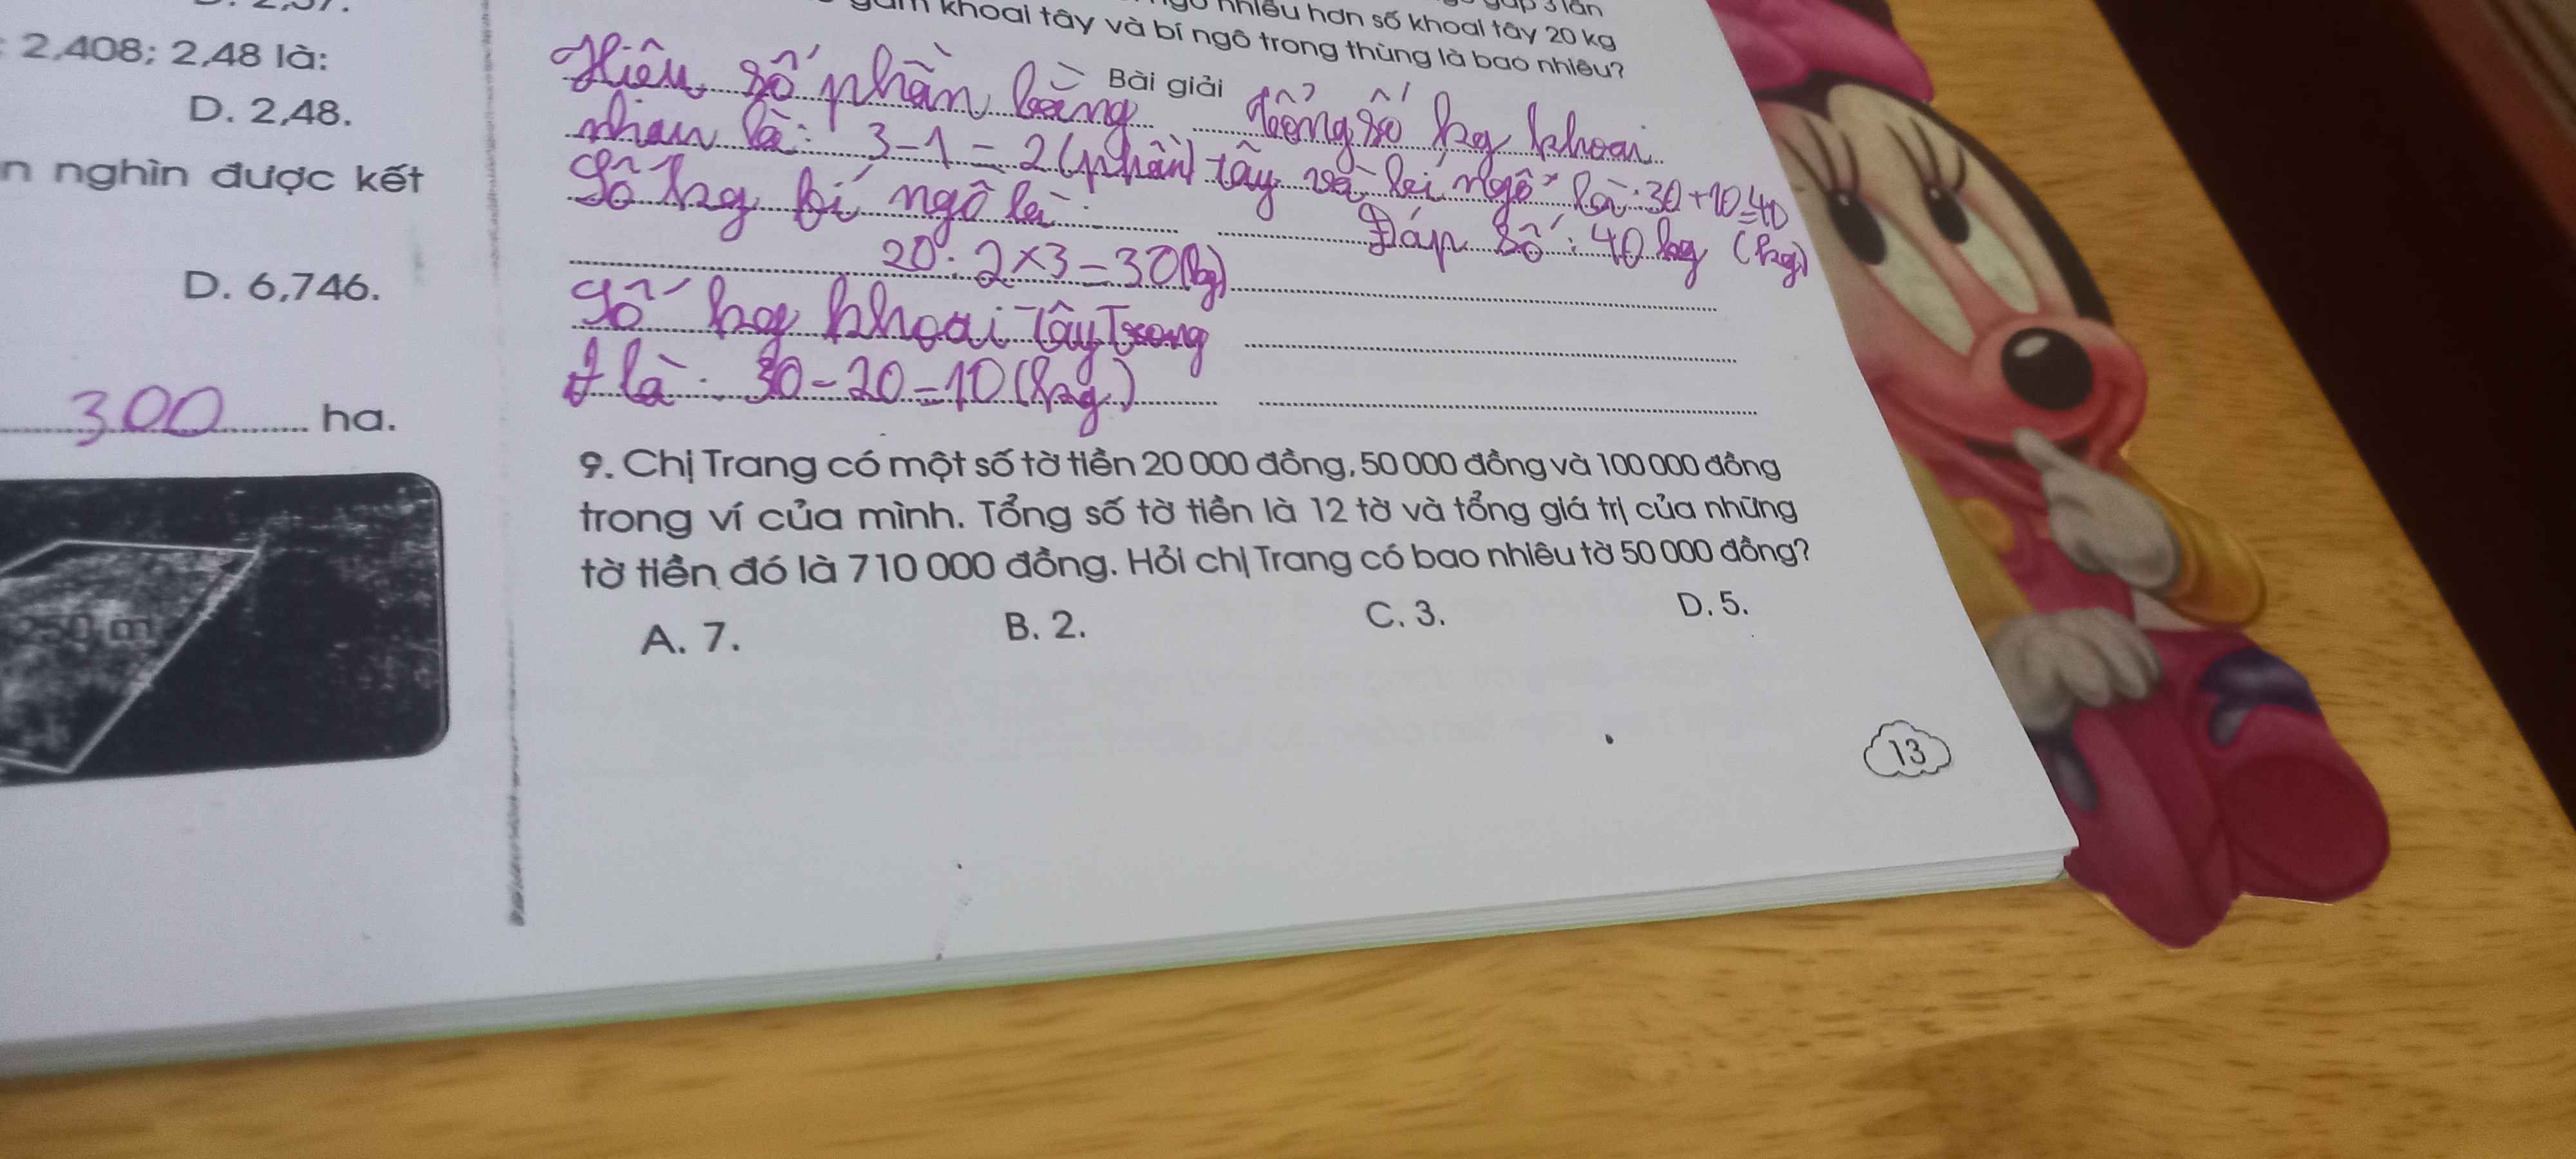 2,408; 2,48 là:
D. 2,48.
n nghìn được kết
D. 6,746.
300 ha.
250 m
gấp 3 lần
nhiều hơn số khoai tây 20 kg
khoai tây và bí ngô trong thùng là bao nhiêu?
Bài giải
Hiệu số phần bằng
nhau là: 3-1=2(phần)
Số kg bí ngô là:
20:2×3=30(kg)
Số kg khoai tây trong
là: 30-20=10(kg)
tổng số kg khoai
tây và bí ngô là: 30+10=40
(kg)
Đáp số: 40 kg
9. Chị Trang có một số tờ tiền 20 000 đồng, 50 000 đồng và 100 000 đồng
trong ví của mình. Tổng số tờ tiền là 12 tờ và tổng giá trị của những
tờ tiền đó là 710 000 đồng. Hỏi chị Trang có bao nhiêu tờ 50 000 đồng?
A. 7. B. 2. C. 3. D. 5.
13